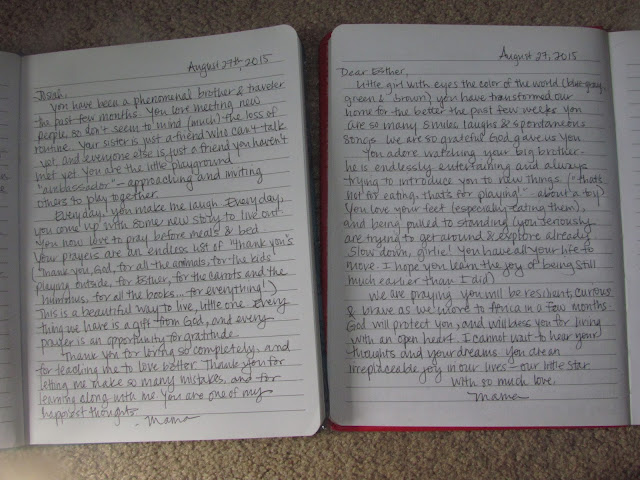 August 27th, 2015
Josiah,
You have been a phenomenal brother & traveler
the past few months. You love meeting new
people, so don't seem to mind (much) the loss of
routine. Your sister is just a friend who can't talk
yet, and everyone else is just a friend you haven't
met yet. You are the little playground
"ambassador" - approaching and inviting
others to play together.
Everyday, you make me laugh. Every day,
you come up with some new story to live out.
You now love to pray before meals & bed.
Your prayers are an endless list of "thank you's"
("thank you, God, for all the animals, for the kids
playing outside, for Esther, for the carrots and the
hummus, for all the books... for everything!")
This is a beautiful way to live, little one. Every
thing we have is a gift from God, and every
prayer is an opportunity for gratitude.
Thank you for loving so completely, and
for teaching me to love better. Thank you for
letting me make so many mistakes, and for
learning along with me. You are one of my
happiest thoughts.
- Mama
August 27, 2015
Dear Esther,
Little girl with eyes the color of the world (blue, gray,
green & brown) you have transformed our
home for the better the past few weeks. You
are so many smiles, laughs & spontaneous
songs. We are so grateful God gave us you.
You adore watching your big brother-
he is endlessly entertaining and always
trying to introduce you to new things. ("that's
not for eating, that's for playing!" - about a toy)
You love your feet (especially eating them),
and being pulled to standing (you seriously
are trying to get around & explore already.
Slow down, girlie! You have all your life to
move. I hope you learn the joy of being still
much earlier than I did)
We are praying you will be resilient, curious
& brave as we move to Africa in a few months.
God will protect you, and will bless you for living
with an open heart. I cannot wait to hear your
thoughts and your dreams. You are an
irreplaceable joy in our lives - our little star.
With so much love,
Mama